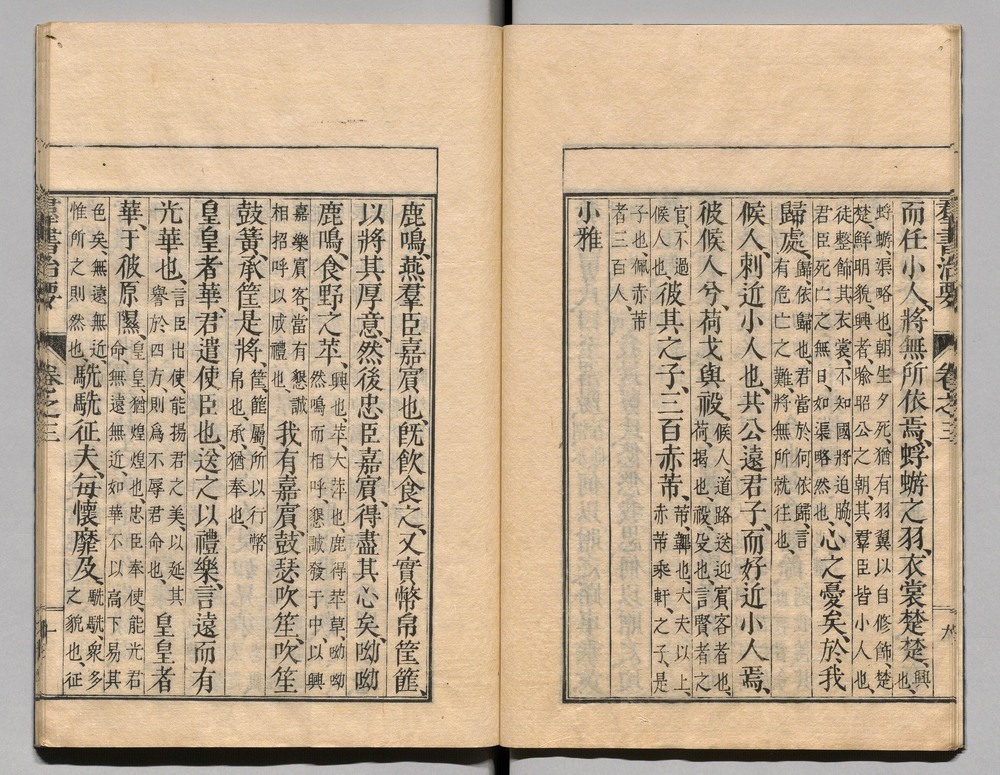 羣書治要 卷之三 九
而任小人、將無所依焉、蜉蝣之羽、衣裳楚楚、興也、
蜉蝣、渠略也、朝生夕死、猶有羽翼以自修飾、楚
楚、鮮明貌、興者喩昭公之朝、其羣臣皆小人也、
徒整飾其衣裳、不知國將迫脇、
君臣死亡之無日、如渠略然也、心之憂矣、於我
歸處、歸、依歸也、君當於何依歸、言
有危亡之難、將無所就往也、
候人、刺近小人也、共公遠君子、而好近小人焉、
彼候人兮、荷戈與祋、候人、道路送迎賓客者也、
荷、揭也、祋、殳也、言賢者之
官、不過候人也、彼其之子、三百赤芾、芾、韠也、大夫以上、
赤芾乘軒、之子、是
子也、佩赤芾
者三百人、
小雅
鹿鳴、燕羣臣嘉賓也、旣飮食之、又實幣帛筐篚、
以將其厚意、然後忠臣嘉賓、得盡其心矣、呦呦
鹿鳴、食野之苹、興也、苹大萍也、鹿得苹草、呦呦
然鳴而相呼、懇誠發于中、以興
嘉樂賓客、當有懇誠
相招呼以成禮也、我有嘉賓、鼓瑟吹笙、吹笙
鼓簧、承筐是將、筐、篚屬、所以行幣
帛也、承、猶奉也、
皇皇者華、君遣使臣也、送之以禮樂、言遠而有
光華也、言臣出使、能揚君之美、以延其
譽於四方、則爲不辱君命也、皇皇者
華、于彼原隰、皇皇猶煌煌也、忠臣奉使、能光君
命、無遠無近、如華不以高下易其
色矣、無遠無近、
惟所之則然也、駪駪征夫、每懷靡及、駪駪、衆多
之貌也、征
羣書治要 卷之三 十